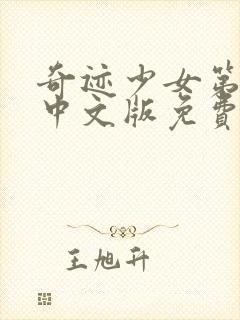 奇迹少女第
中文版免费
王旭升